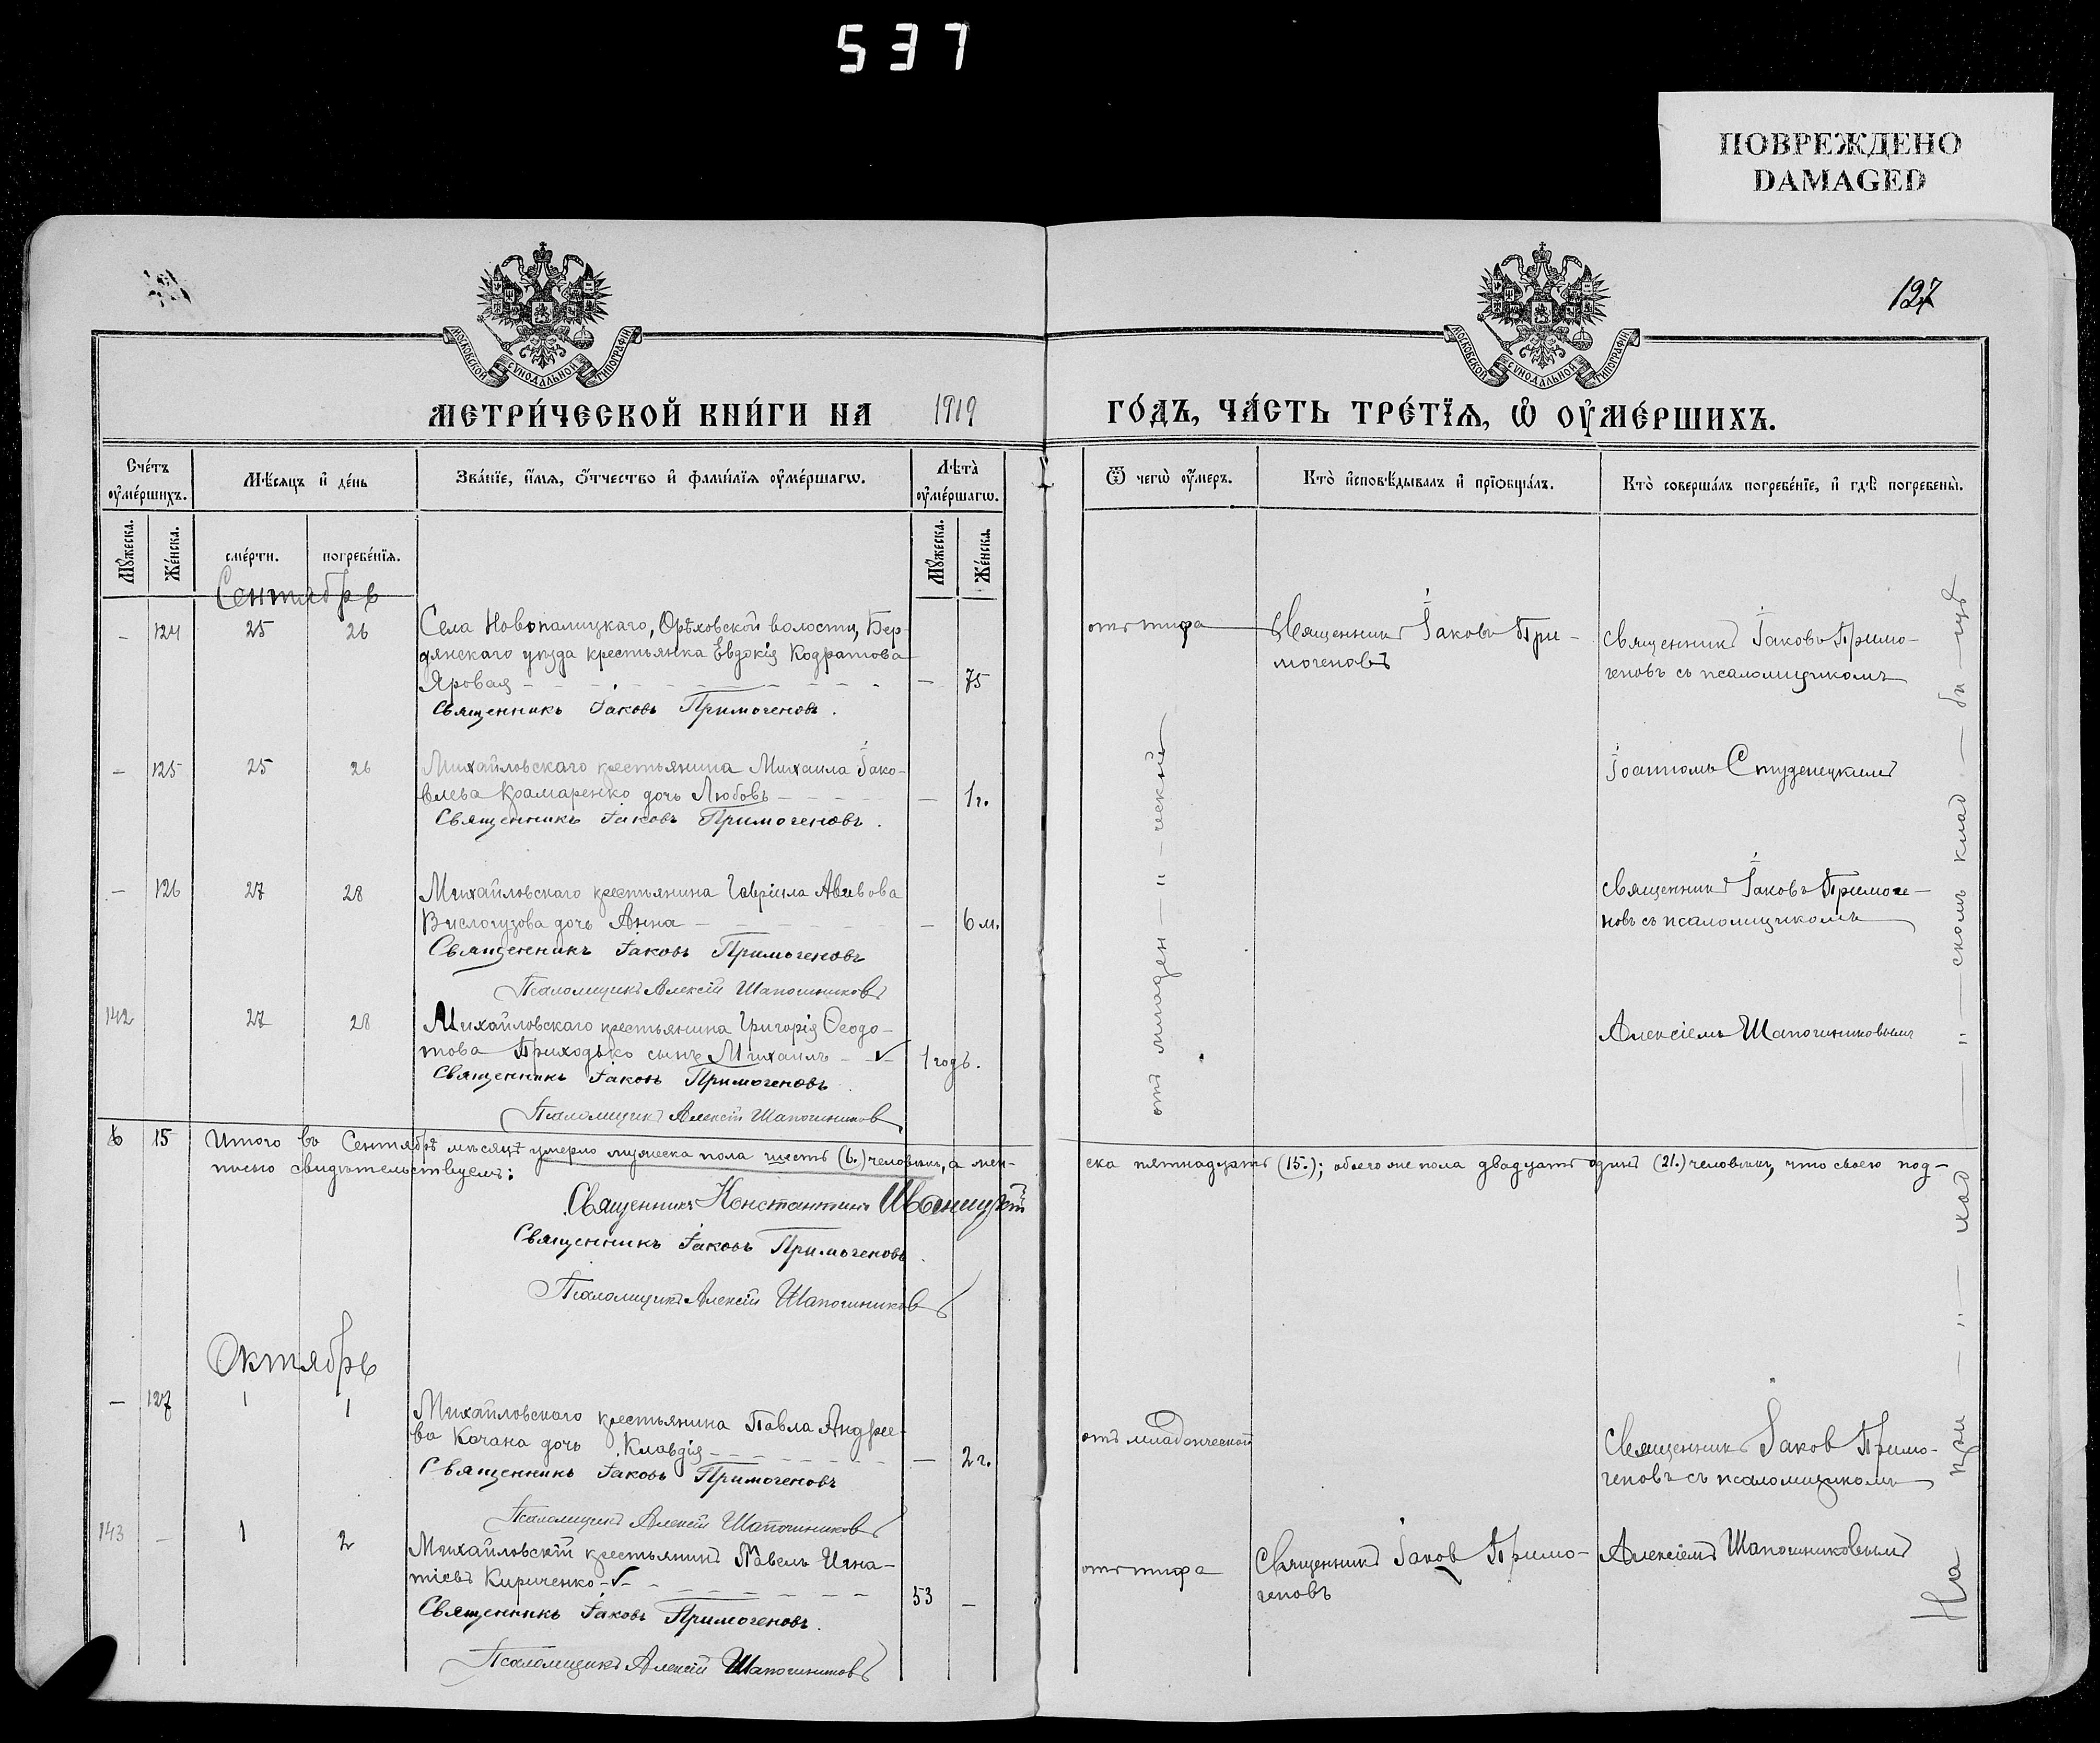 537
ПОВРЕЖДЕНО
DAMAGED
127
МОСКОВСКОЙ СУНОДАЛЬНОЙ ТИПОГРАФІИ
МОСКОВСКОЙ СУНОДАЛЬНОЙ ТИПОГРАФІИ
МЕТРИ́ЧЕСКОЙ КНИ́ГИ НА 1919 ГО́ДЪ, ЧА́СТЬ ТРЕ́ТЇѦ, Ѿ ОУ҆МЕ́РШИХЪ.
Сче́тъ оу҆ме́ршихъ.
Мѣ́сяцъ и҆ де́нь
Зва́нїе, и҆́мя, ѻ҆́тчество и҆ фами́лїя оу҆ме́ршагѡ.
Лѣта̀ оу҆ме́ршагѡ.
Ѿ чегѡ̀ оу҆́меръ.
Кто̀ и҆сповѣ́дывалъ и҆ прїѡбща́лъ.
Кто̀ соверша́лъ погребе́нїе, и҆ гдѣ̀ погребены̀.
Мꙋ́жеска.
Же́нска.
сме́рти.
погребе́нїя.
Мꙋ́жеска.
Же́нска.
Сентябрь
– 124 25 26 Села Новопалицкаго, Орѣховской волости, Бер-
дянскаго уѣзда крестьянка Евдокія Кодратова
Яровая – 75
Священникъ Іаковъ Примогеновъ.
отъ тифа
Священникъ Іаковъ При-
могеновъ
Священникъ Іаковъ Примо-
геновъ съ псаломщикомъ
– 125 25 26 Михайловскаго крестьянина Михаила Іако-
влева Крамаренко дочь Любовь – 1 г.
Священникъ Іаковъ Примогеновъ.
Іоанномъ Студенецкимъ
– 126 27 28 Михайловскаго крестьянина Гавріила Авивова
Вислогузова дочь Анна – 6 м.
Священникъ Іаковъ Примогеновъ
Псаломщикъ Алексій Шапошниковъ
Священникъ Іаковъ Примоге-
новъ съ псаломщикомъ
142 27 28 Михайловскаго крестьянина Григорія Ѳеодо-
това Приходько сынъ Михаилъ 1 годъ.
Священникъ Іаковъ Примогеновъ.
Псаломщикъ Алексій Шапошниковъ
Алексіемъ Шапошниковымъ
отъ младен — " — ческой
6 15 Итого въ Сентябрѣ мѣсяцѣ умерло мужеска пола шесть (6.) человѣкъ, а жен-
ска пятнадцать (15.); обоего же пола двадцать одинъ (21.) человѣкъ, что своею под-
писью свидѣтельствуемъ:
Священникъ Константинъ
Священникъ Іаковъ Примогеновъ.
Псаломщикъ Алексій Шапошниковъ
Октябрь
– 127 1 1 Михайловскаго крестьянина Павла Андрее-
ва Качана дочь Клавдія – 2 г.
Священникъ Іаковъ Примогеновъ
Псаломщикъ Алексій Шапошниковъ
отъ младенческой
Священникъ Іаков Примо-
геновъ съ псаломщикомъ
143 – 1 2 Михайловскій крестьянинъ Павелъ Игна-
тіевъ Кириченко 53 –
Священникъ Іаковъ Примогеновъ.
Псаломщикъ Алексій Шапошниковъ
отъ тифа
Священникъ Іаков Примо-
геновъ
Алексіемъ Шапошниковымъ
На прих — " — скомъ клад — би — щѣ